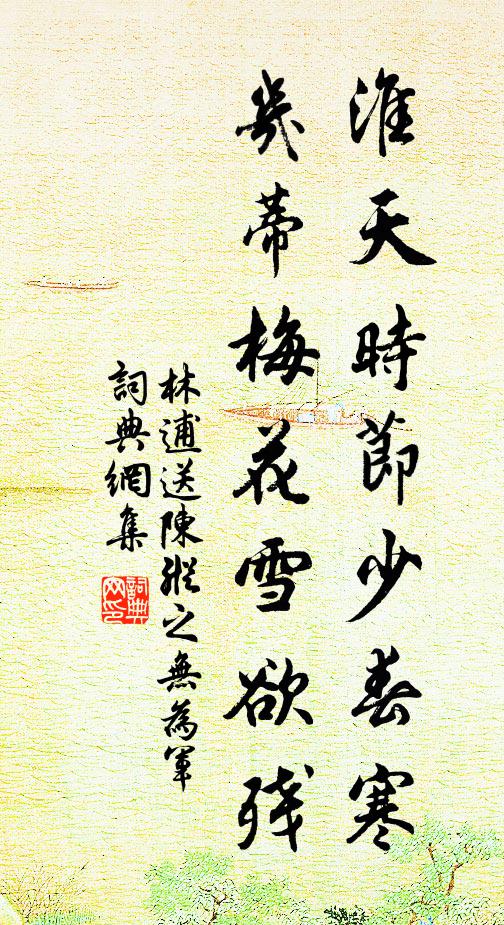 淮天時節少春寒
幾蒂梅花雪欲残
林逋送陳縱之無為軍
詞典網集
詞典网印